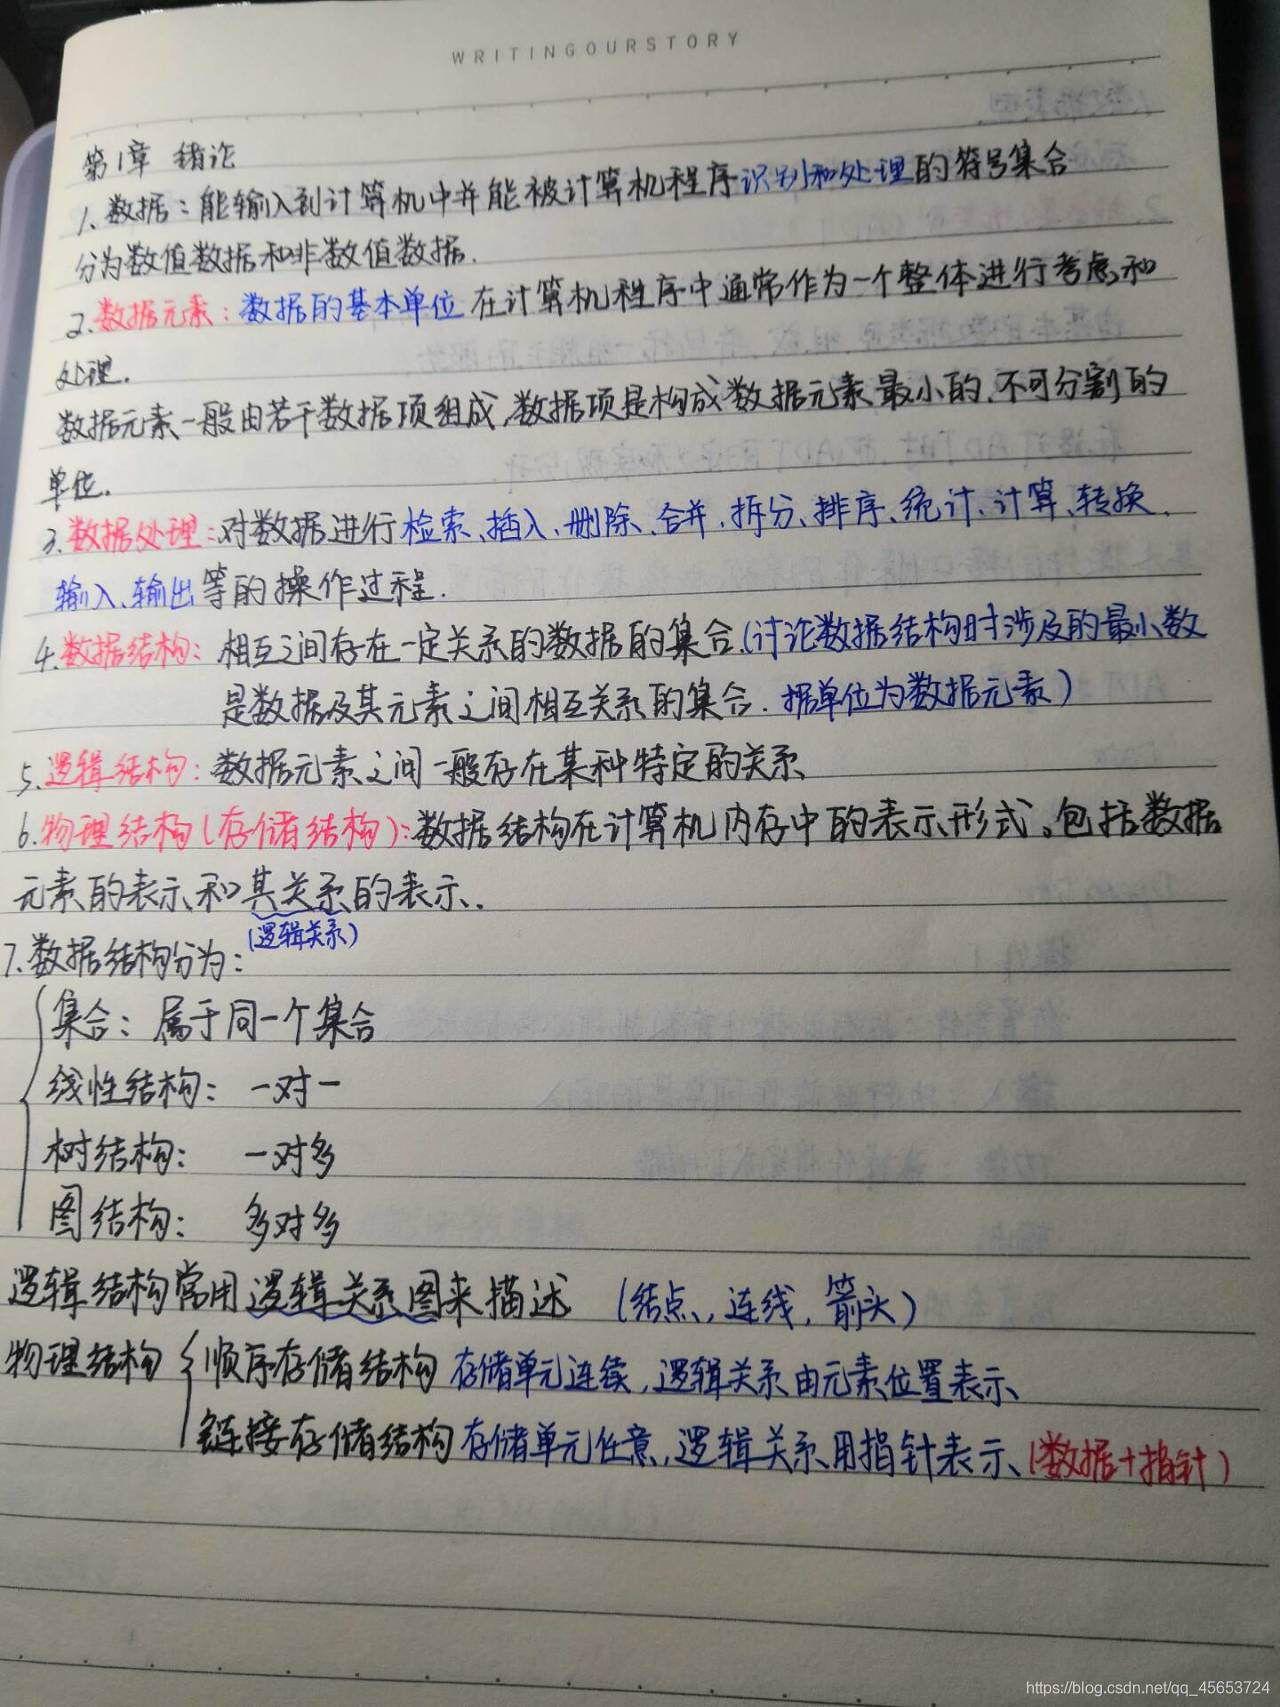 WRITINGOURSTORY
第1章 绪论
1.数据：能输入到计算机中并能被计算机程序识别和处理的符号集合
分为数值数据和非数值数据.
2.数据元素：数据的基本单位 在计算机程序中通常作为一个整体进行考虑和
处理.
数据元素一般由若干数据项组成,数据项是构成数据元素最小的、不可分割的
单位.
3.数据处理：对数据进行检索、插入、删除、合并、拆分、排序、统计、计算、转换、
输入、输出等的操作过程.
4.数据结构：相互之间存在一定关系的数据的集合.(讨论数据结构时涉及的最小数
是数据及其元素之间相互关系的集合. 据单位为数据元素)
5.逻辑结构：数据元素之间一般存在某种特定的关系
6.物理结构(存储结构)：数据结构在计算机内存中的表示形式。包括数据
元素的表示和其关系的表示.
(逻辑关系)
7.数据结构分为：
集合：属于同一个集合
线性结构： 一对一
树结构： 一对多
图结构： 多对多
逻辑结构常用逻辑关系图来描述 (结点,连线,箭头)
物理结构 { 顺序存储结构 存储单元连续,逻辑关系由元素位置表示
链接存储结构 存储单元任意,逻辑关系用指针表示(数据+指针)
https://blog.csdn.net/qq_45653724